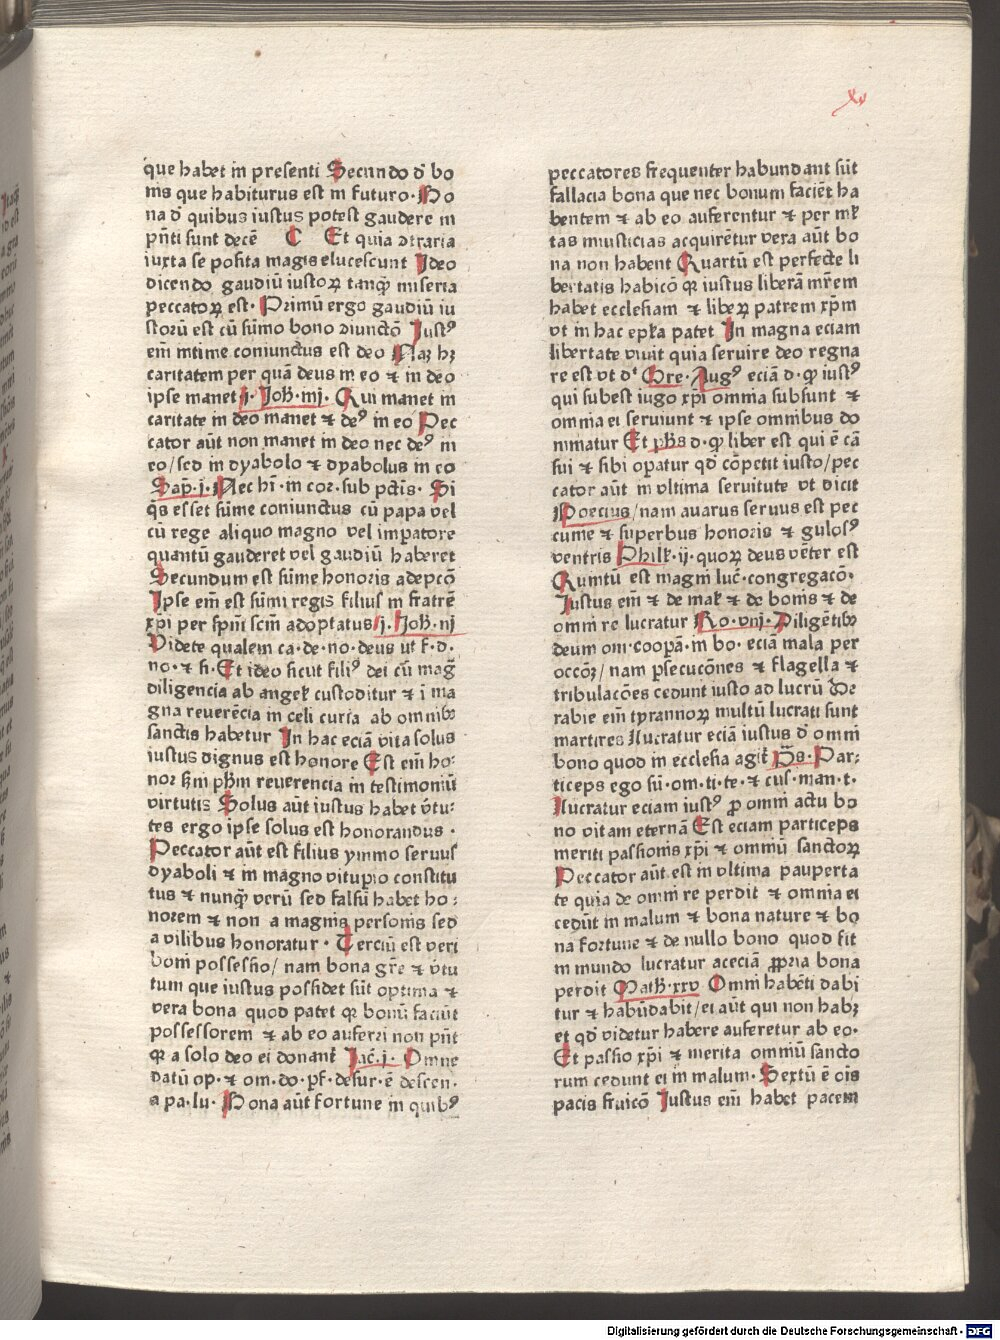 xv
que habet in presenti Secundo d̕ bo
nis que habiturus est in futuro · Bo
na d̕ quibus iustus potest gaudere in
pn̄ti sunt decē C Et quia ꝯtraria
iuxta se posita magis elucescunt Ideo
dicendo gaudiū iustoꝝ tanqͣꝫ miseria
peccatoꝝ est · Primū ergo gaudiū iu
storū est cū sūmo bono ꝯiunctō Iustꝰ
em̄ intime coniunctus est deo Nā hꝫ
caritatem per quā deus in eo ⁊ in deo
ipse manet j · Joh̄ · iiij · Qui manet in
caritate in deo manet ⁊ deꝰ in eo Pec
cator aūt non manet in deo nec deꝰ in
eo / sed in dyabolo ⁊ dyabolus in eo
Sap̄ · j · Nec hī · in cor · sub pctīs · Si
qͥs esset sūme coniunctus cū papa vel
cū rege aliquo magno vel impatore
quantū gauderet vel gaudiū haberet
Secundum est sūme honoris adepcō
Ipse em̄ est sūmi regis filius in fratrē
xp̄i per sp̄m scm̄ adoptatus j · Joh̄ · iij
Videte qualem ca · de · no · deus ut f · d ·
no · ⁊ si · Et ideo sicut filiꝰ dei cū maḡ
diligencia ab angel̕ custoditur ⁊ ī ma
gna reuerēcia in celi curia ab omnibꝫ
sanctis habetur In hac eciā vita solus
iustus dignus est honore Est em̄ ho:
nor scd̄m ph̄m reuerencia in testimoniū
virtutis Solus aūt iustus habet v̄tu:
tes ergo ipse solus est honorandus ·
Peccator aūt est filius ymmo seruus
dyaboli ⁊ in magno vitupio constitu
tus ⁊ nunqͣꝫ verū sed falsū habet ho:
norem ⁊ non a magnis personis sed
a vilibus honoratur · Terciū est veri
boni possessio / nam bona gr̄e ⁊ v̄tu
tum que iustus possidet sūt optima ⁊
vera bona quod patet qꝛ bonū faciūt
possessorem ⁊ ab eo auferri non pn̄t
qꝛ a solo deo ei donant̕ Jac̄ · j · Omne
datū op · ⁊ om · do · pf · desur · ē descen ·
a pa · lu · Bona aūt fortune in quibꝰ
peccatores frequenter habundant sūt
fallacia bona que nec bonum faciēt ha
bentem ⁊ ab eo auferentur ⁊ per ml̕
tas iniusticias acquirētur vera aūt bo
na non habent Quartū est perfecte li
bertatis habicō qꝛ iustus liberā mr̄em
habet ecclesiam ⁊ libeꝝ patrem xp̄m
vt in hac epl̄a patet In magna eciam
libertate viuit quia seruire deo regna
re est vt d̕ Gre · Augꝰ eciā d · ꝙ iustꝰ
qui subest iugo xp̄i omnia subsunt ⁊
omnia ei seruiunt ⁊ ipse omnibus do
minatur Et ph̄s d · ꝙ liber est qui ē cā
sui ⁊ sibi opatur qd̕ cōpetit iusto / pec
cator aūt in vltima seruitute vt dicit
Boecius / nam auarus seruus est pec
cunie ⁊ superbus honoris ⁊ gulosꝰ
ventris Phil̕ · ij · quoꝝ deus vēter est
Quintū est magni luc̄ · congregacō ·
Iustus em̄ ⁊ de mal̕ ⁊ de bonis ⁊ de
omni re lucratur Ro · viij · Diligētibꝫ
deum om · coopā · in bo · eciā mala per
occōꝫ / nam ꝑsecucōnes ⁊ flagella ⁊
tribulacōes cedunt iusto ad lucrū De
rabie em̄ tyrannoꝝ multū lucrati sunt
martires Ilucratur eciā iustus d̕ omni
bono quod in ecclesia agit̕ p̄s · Par:
ticeps ego sū · om · ti · te · ⁊ cus · man · t ·
Ilucratur eciam iustꝰ ꝓ omni actu bo
no vitam eternā Est eciam particeps
meriti passionis xp̄i ⁊ omniū sanctoꝝ
Peccator aūt est in vltima pauperta
te quia de omni re perdit ⁊ omnia ei
cedūt in malum ⁊ bona nature ⁊ bo
na fortune ⁊ de nullo bono quod fit
in mundo lucratur aceciā ꝓpria bona
perdit Math̄ · xxv Omni habēti dabi
tur ⁊ habūdabit / ei aūt qui non habꝫ
et qd̕ videtur habere auferetur ab eo ·
Et passio xp̄i ⁊ merita omniū sancto
rum cedunt ei in malum · Sextū ē oīs
pacis fruicō Iustus em̄ habet pacem
Digitalisierung gefördert durch die Deutsche Forschungsgemeinschaft - DFG